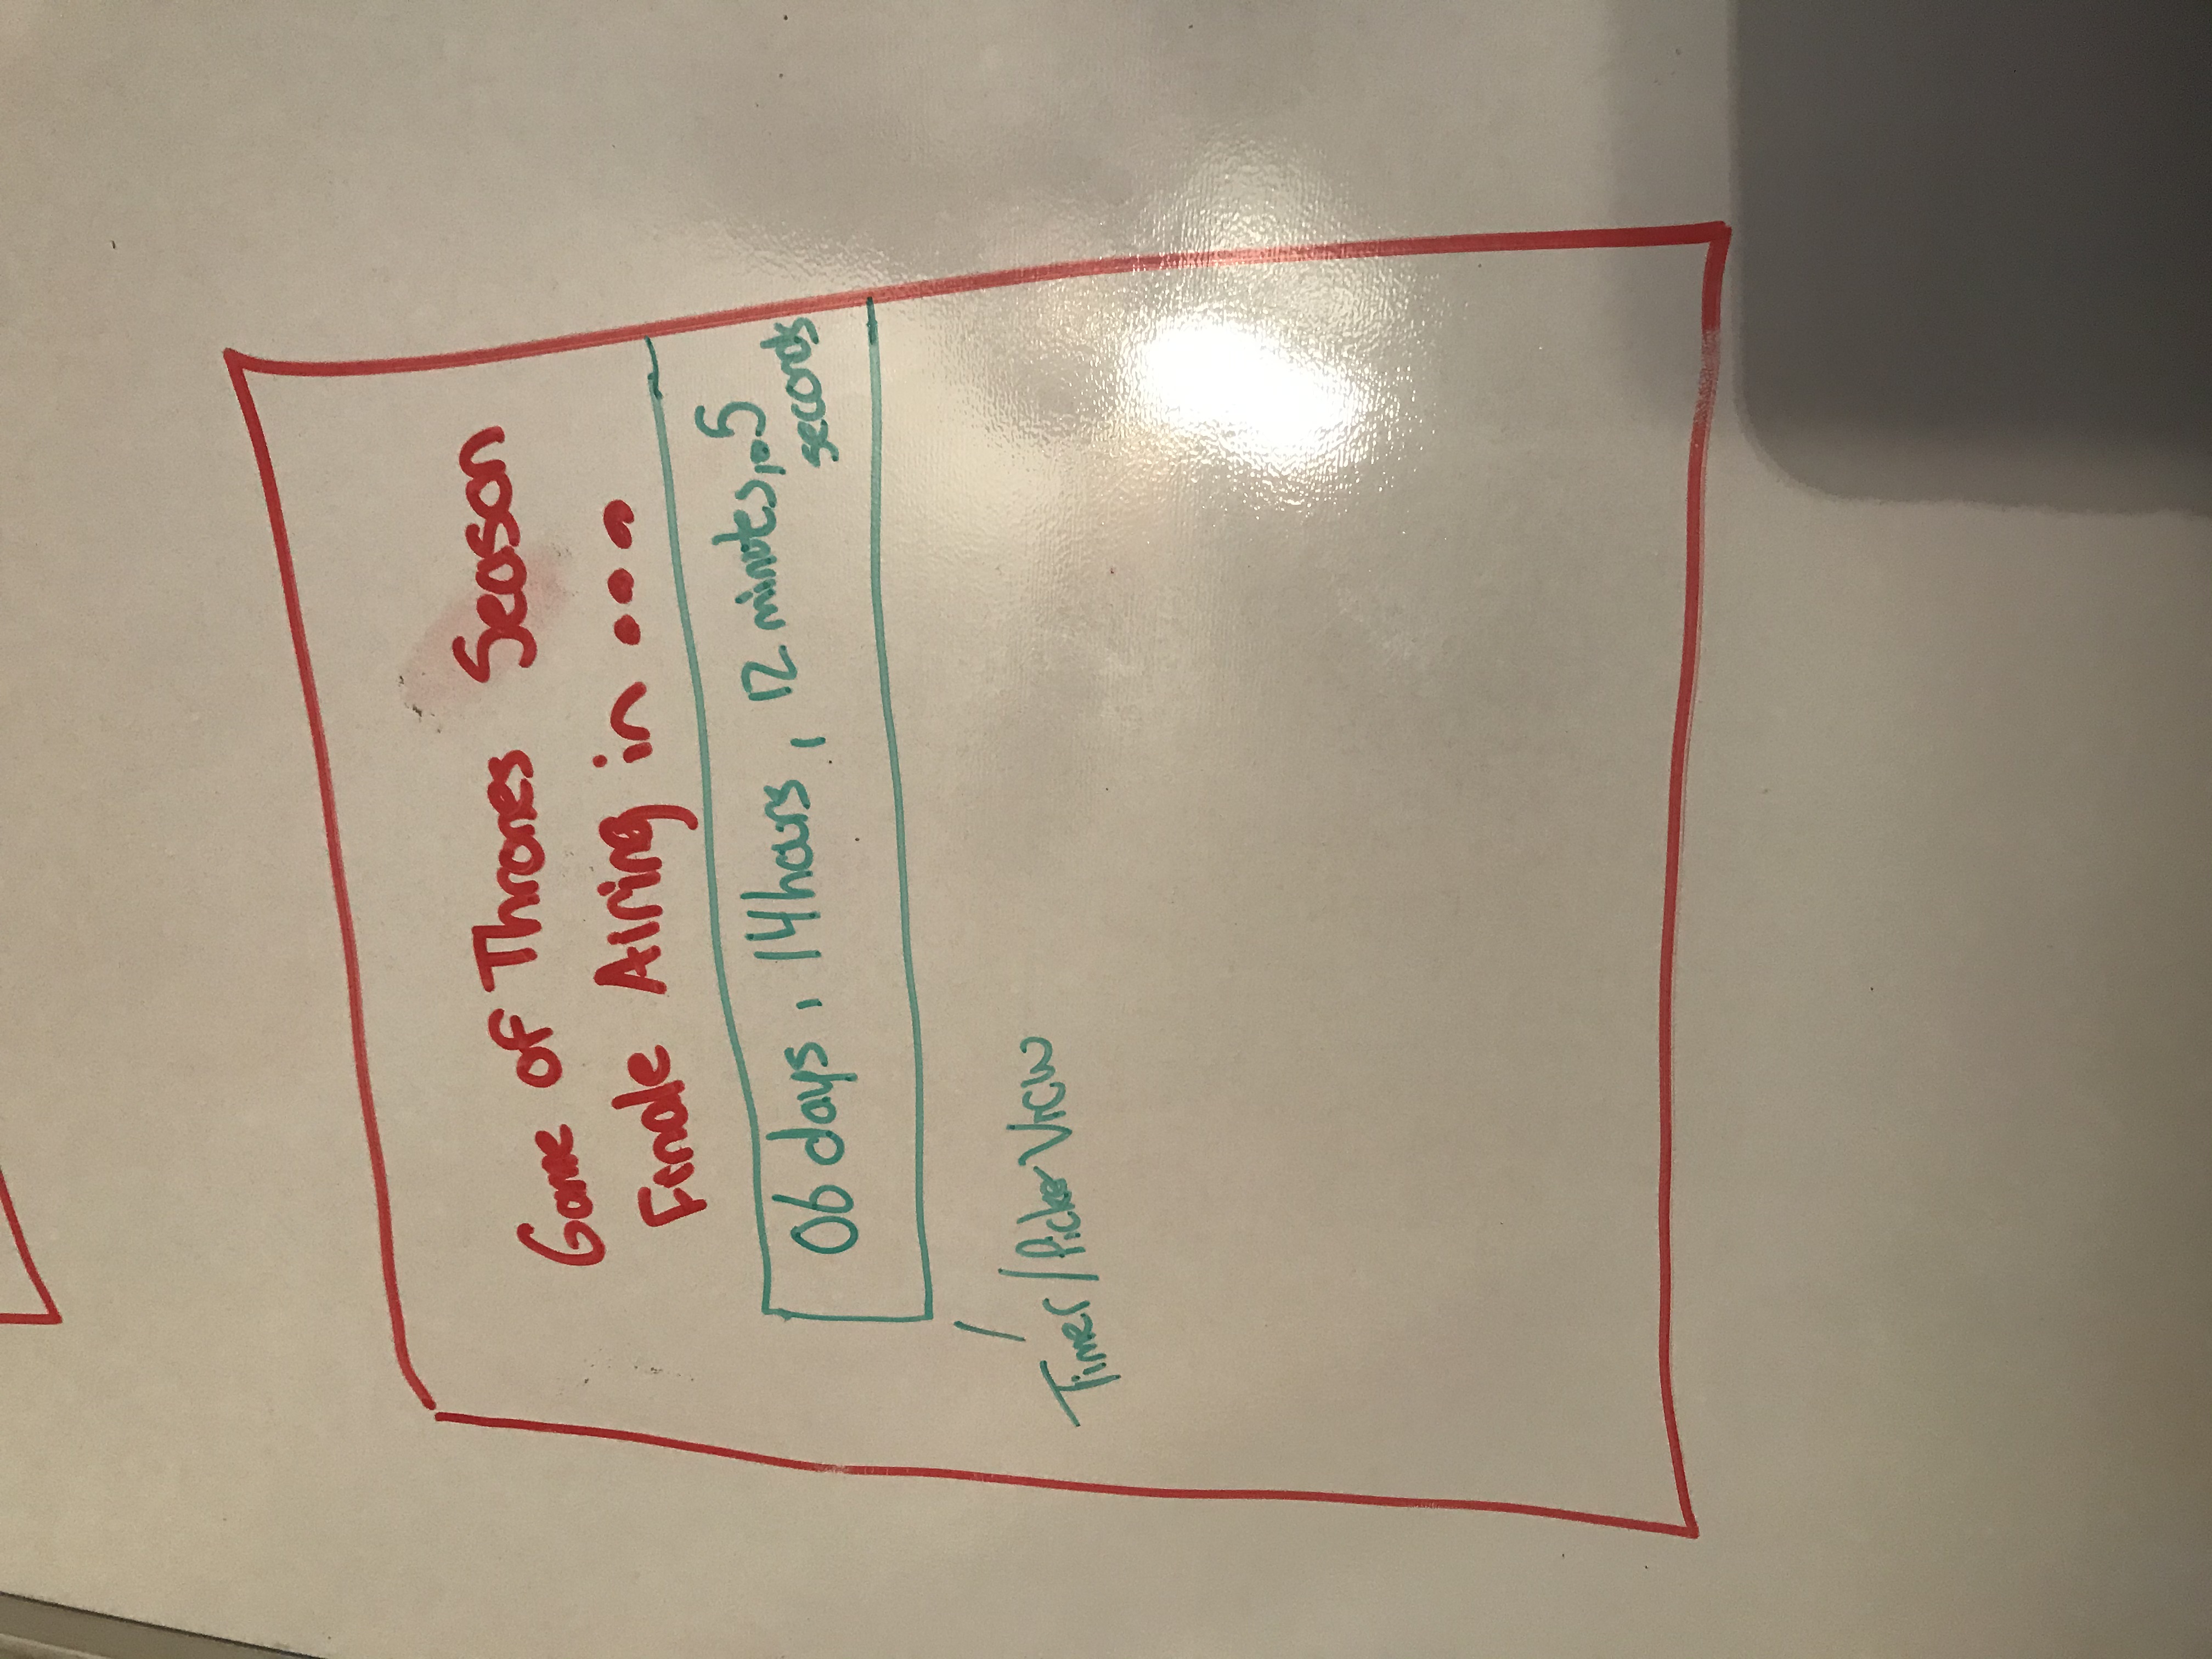 Game of Thrones Season
Finale Airing in ...
06 days, 14 hours, 12 minutes, .5
seconds
Timer/Picker View